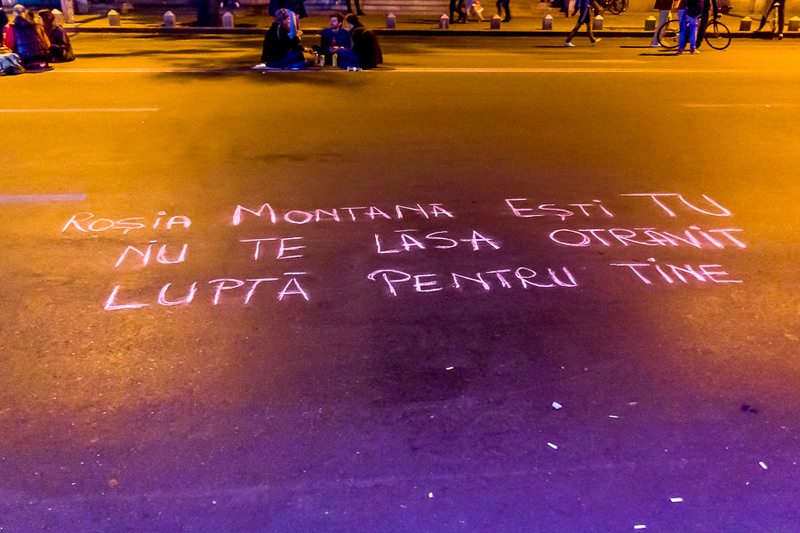 ROȘiA MONTANĂ EȘTi TU
NiU TE LĂSA OTRĂViT
LUPTĂ PENTRU TiNE